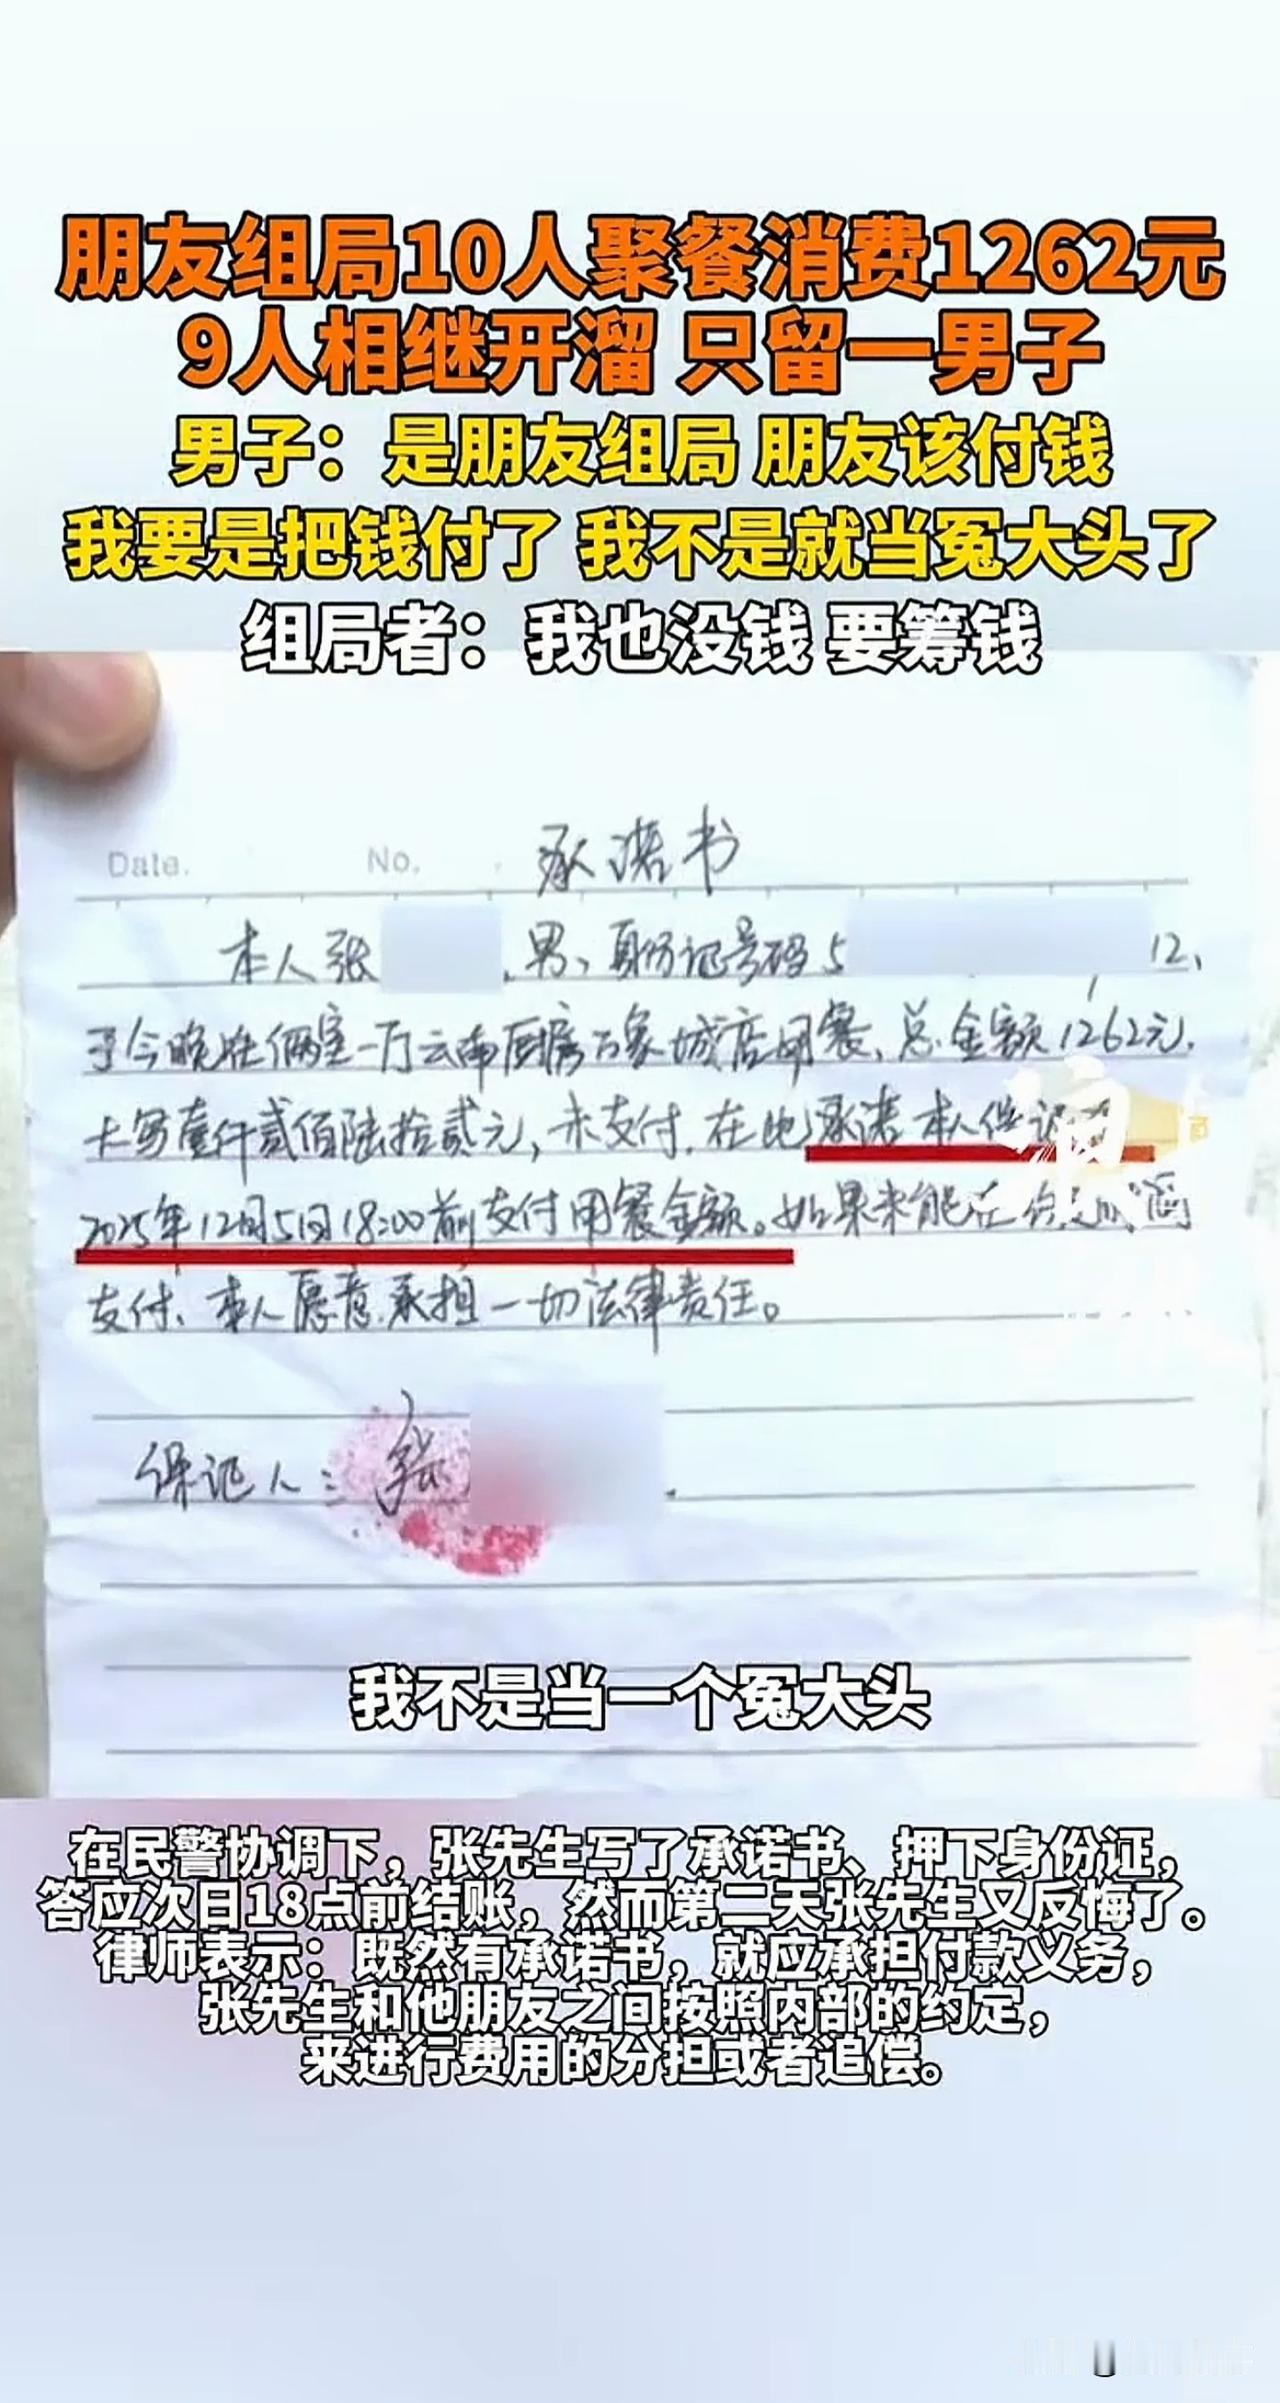 朋友组局10人聚餐消费1262元
9人相继开溜 只留一男子
男子：是朋友组局 朋友该付钱
我要是把钱付了 我不是就当冤大头了
组局者：我也没钱 要筹钱
Date. No. 承诺书
本人张 ，男、身份证号码5 12、
于今晚在俩室一厅云南厨房万象城店用餐、总金额1262元、
大写壹仟贰佰陆拾贰元，未支付．在此承诺本人保证
2025年12月5日18:00前支付用餐金额。如果未能在
支付、本人愿意承担一切法律责任。
保证人：张
我不是当一个冤大头
在民警协调下，张先生写了承诺书、押下身份证，
答应次日18点前结账，然而第二天张先生又反悔了。
律师表示：既然有承诺书，就应承担付款义务，
张先生和他朋友之间按照内部的约定，
来进行费用的分担或者追偿。